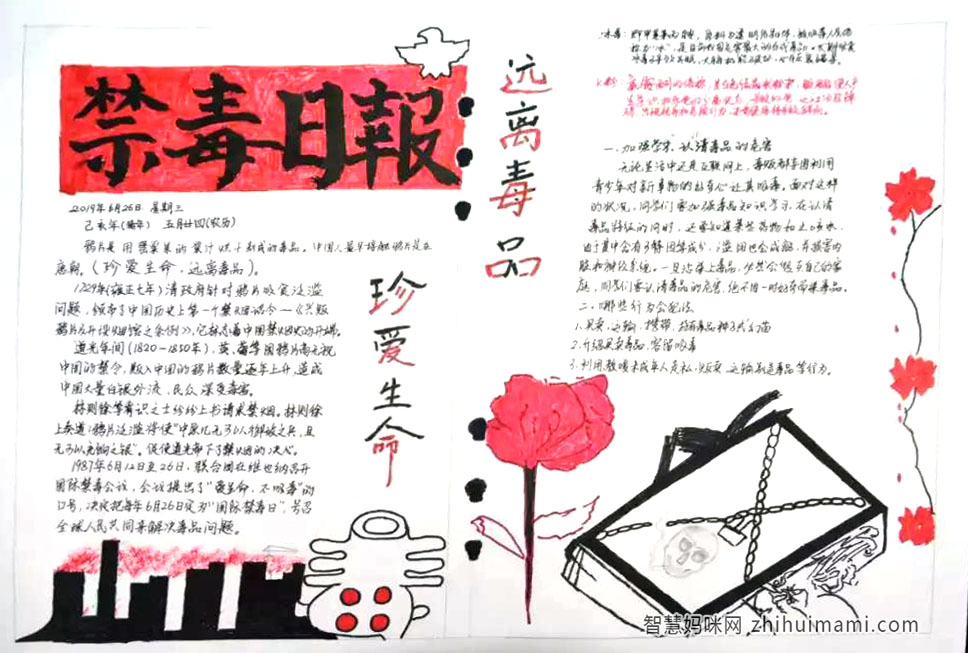 禁毒日報
2019年6月26日 星期三
己亥年(猪年) 五月廿四(农历)
鸦片是用罂粟果的浆汁烘干制成的毒品。中国人最早接触鸦片是在
唐朝。(珍爱生命,远离毒品)。
1729年(雍正七年)清政府针对鸦片吸食泛滥
问题,颁布了中国历史上第一个禁烟诏令——《兴贩
鸦片及开设烟馆之条例》,它标志着中国禁烟史的开端。
道光年间(1820-1850年),英、葡等国鸦片商无视
中国的禁令,贩入中国的鸦片数量逐年上升,造成
中国大量白银外流,民众深受毒害。
林则徐等有识之士纷纷上书请求禁烟。林则徐
上奏道:鸦片泛滥将使"中原几无可以御敌之兵,且
无可以充饷之银"。促使道光帝下了禁烟的决心。
1987年6月12日至26日,联合国在维也纳召开
国际禁毒会议,会议提出了"爱生命,不吸毒"的
口号,决定把每年6月26日定为"国际禁毒日",号召
全球人民共同来解决毒品问题。
珍爱生命
远离毒品
一、加强学习,认清毒品的危害
无论生活中还是互联网上,毒贩都会利用
青少年对新事物的好奇心让其吸毒。面对这样
的状况,同学们要加强毒品知识学习,在认清
毒品特征的同时,还要知道某些药物和止咳水,
由于其中会有
滥用也会成瘾,并损害内
脏和神经系统。一旦沾染上毒品,
自己的家
庭,同学们要认清毒品的危害,绝不因一时好奇带来毒品。
二、哪些行为会犯法
1.买卖、运输、携带、持有毒品种子或幼苗
2.介绍买卖毒品,容留吸毒
3.利用教唆未成年人走私、贩卖、运输制造毒品等行为。
智慧妈咪网 zhihuimami.com